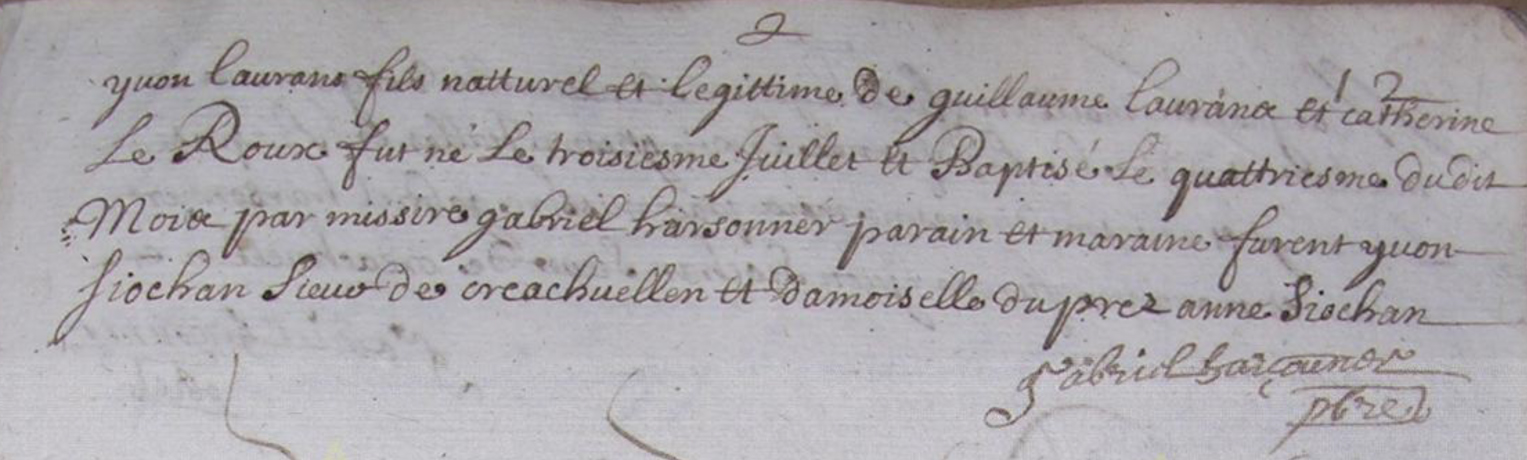 2
yuon laurans fils natturel et legittime de guillaume laurans et catherine
12
Le Roux fut né Le troisiesme Juillet et Baptisé Le quattriesme dudit
Mois par missire gabriel harsonner parain et maraine furent yuon
Siochan Sieur de creachuellen et damoiselle duprez anne Siochan
gabriel harçouner
pbre